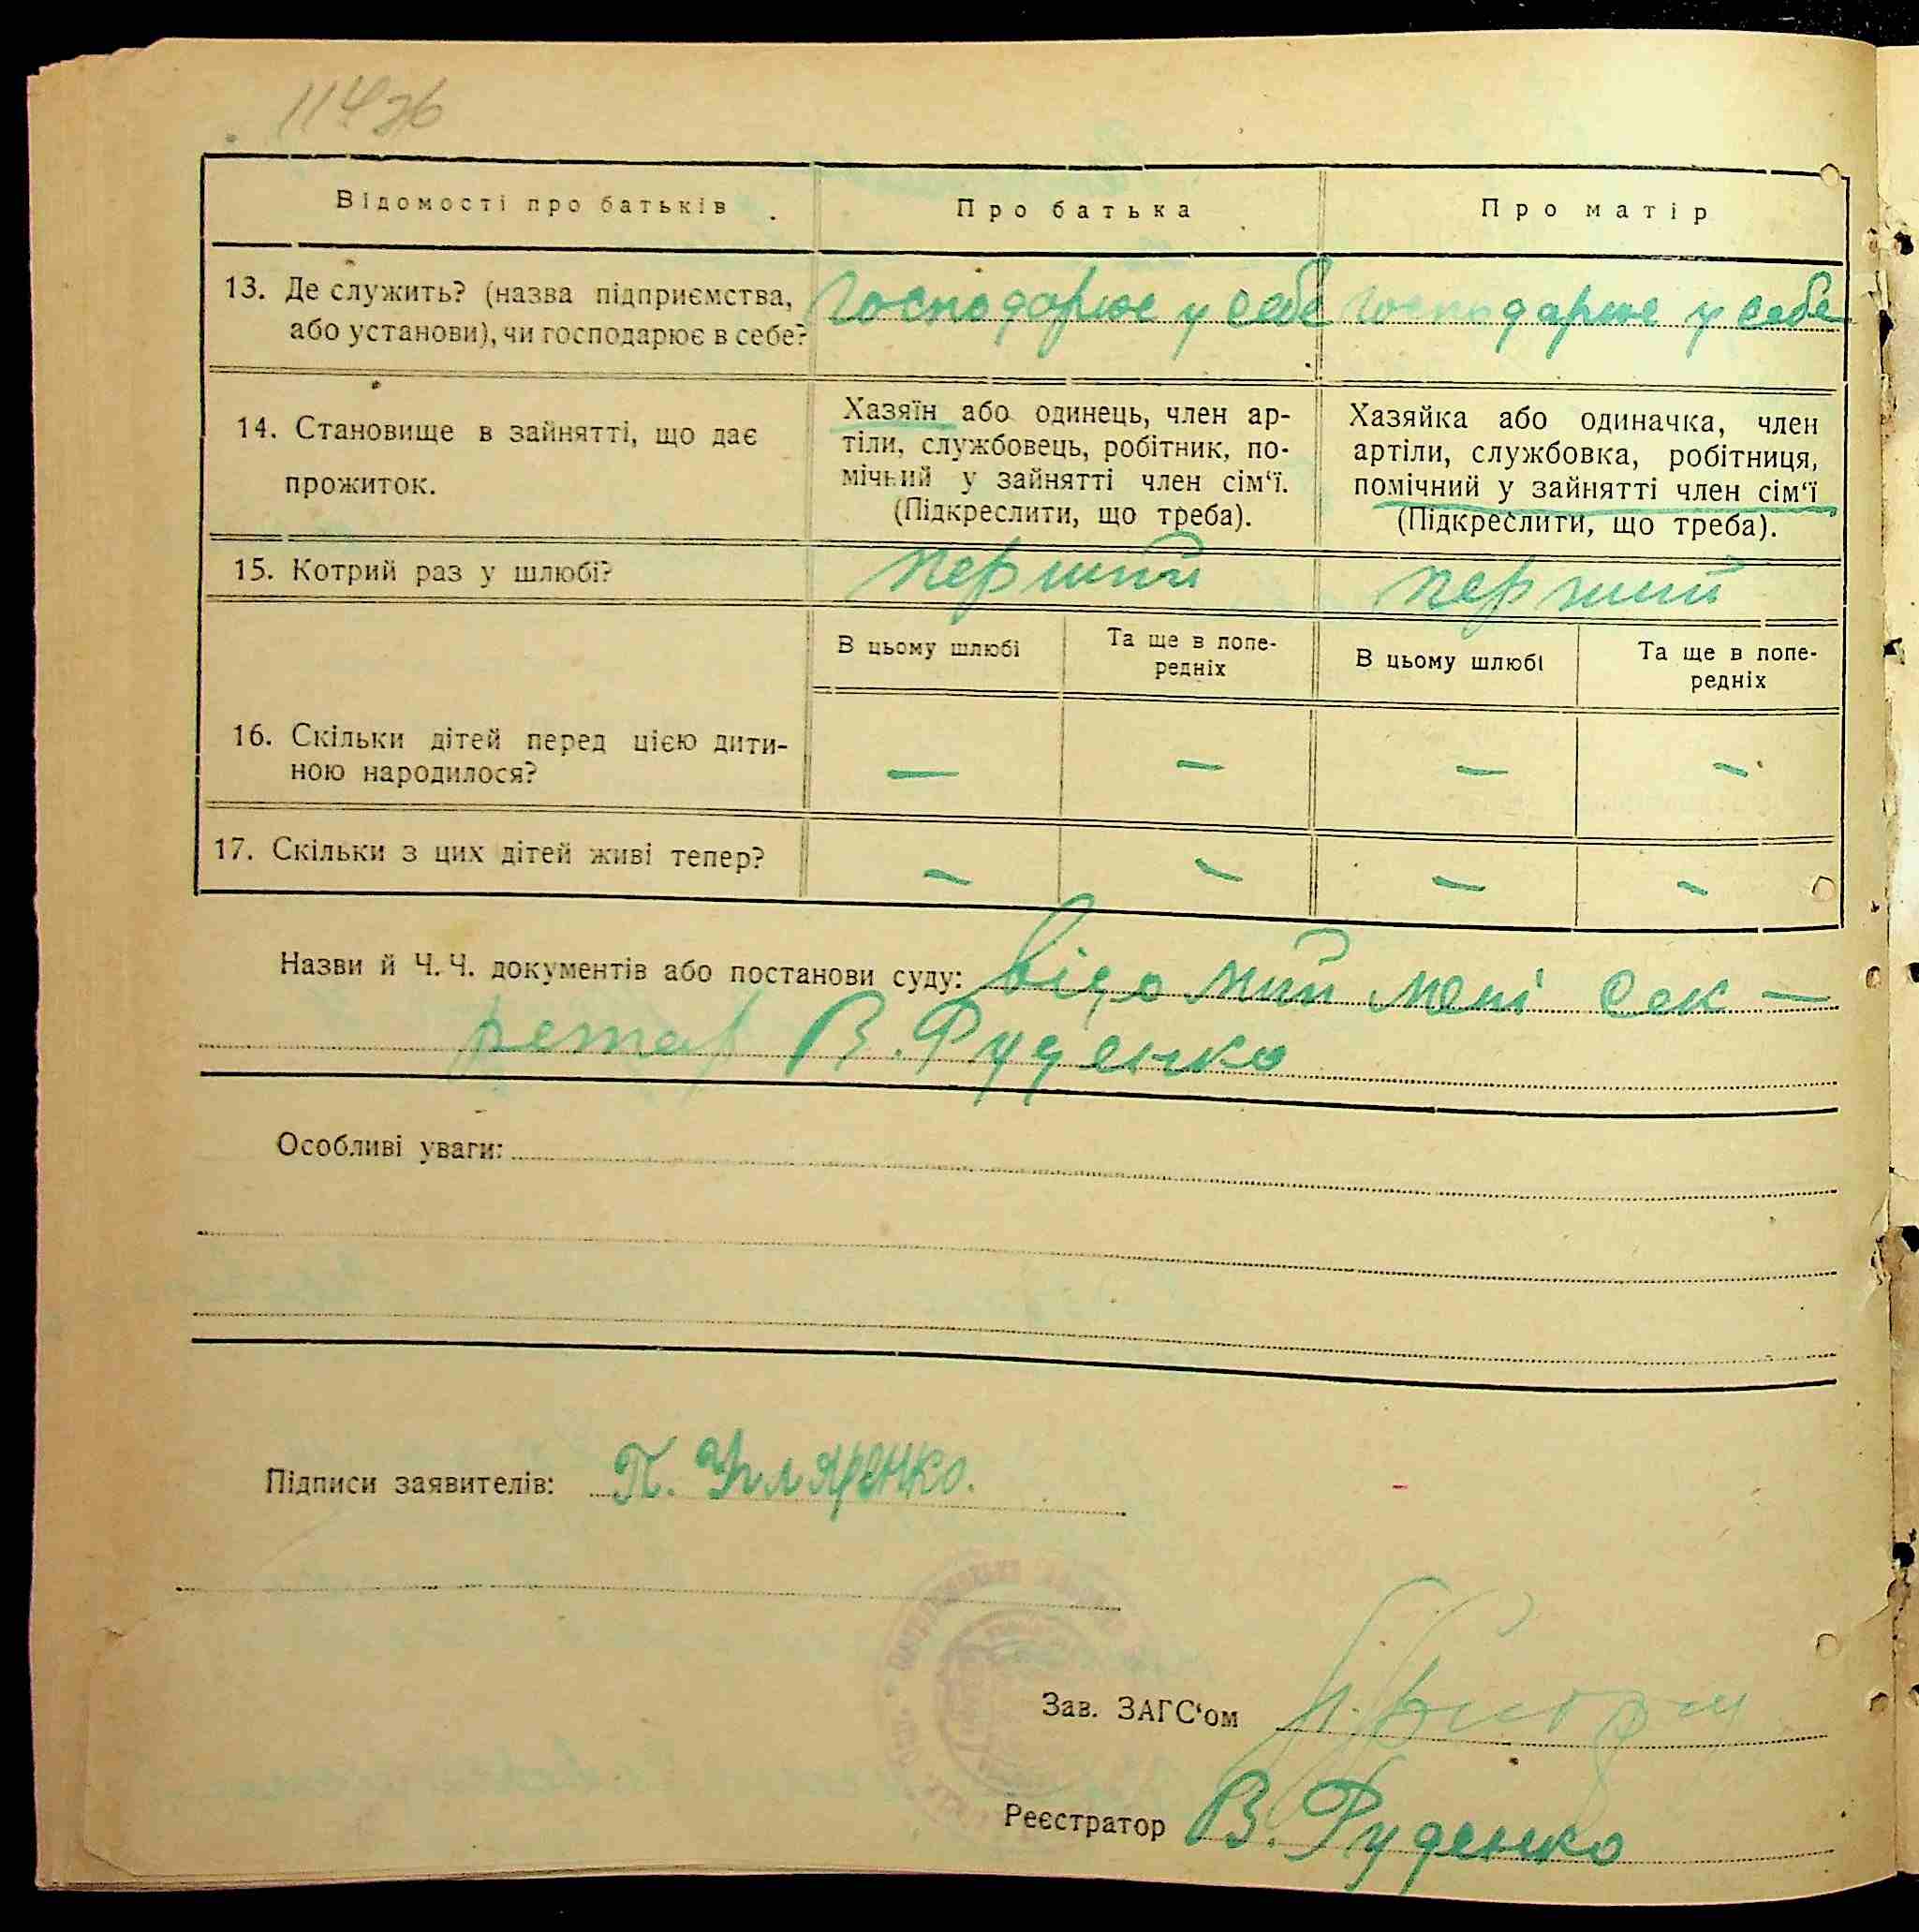 114зв
Відомості про батьків
Про батька
Про матір
13. Де служить? (назва підприємства,
або установи), чи господарює в себе?
Господарює у себе
Господарює у себе
14. Становище в зайнятті, що дає
прожиток.
Хазяїн або одинець, член ар-
тіли, службовець, робітник, по-
мічний у зайнятті член сім‘ї.
(Підкреслити, що треба).
Хазяйка або одиначка, член
артіли, службовка, робітниця,
помічний у зайнятті член сім‘ї
(Підкреслити, що треба).
15. Котрий раз у шлюбі?
перший
перший
В цьому шлюбі
Та ще в попе-
редніх
В цьому шлюбі
Та ще в попе-
редніх
16. Скільки дітей перед цією дити-
ною народилося?
— — — —
17. Скільки з цих дітей живі тепер?
— — — —
Назви й Ч. Ч. документів або постанови суду: відомий мені сек-
ретар В. Руденко
Особливі уваги:
Підписи заявителів: П.
Зав. ЗАГС‘ом
Реєстратор В. Руденко